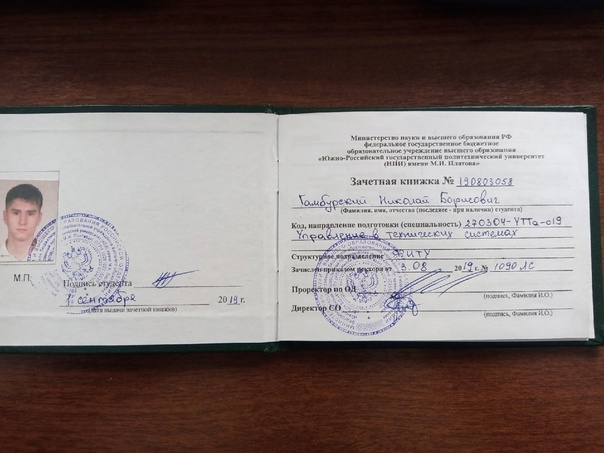 М.П.
Подпись студента
1 сентября 2019 г.
(дата выдачи зачетной книжки)
Министерство науки и высшего образования РФ
федеральное государственное бюджетное
образовательное учреждение высшего образования
«Южно-Российский государственный политехнический университет
(НПИ) имени М.И. Платова»
Зачетная книжка № 190803058
Гамбурский Николай Борисович
(Фамилия, имя, отчество (последнее - при наличии) студента)
Код, направление подготовки (специальность) 270304-УТПа-о19
Управление в технических системах
Структурное подразделение ФИТУ
Зачислен приказом ректора от 3.08 2019 г. № 1090ЛС
Проректор по ОД
(подпись, Фамилия И.О.)
Директор СО
(подпись, Фамилия И.О.)